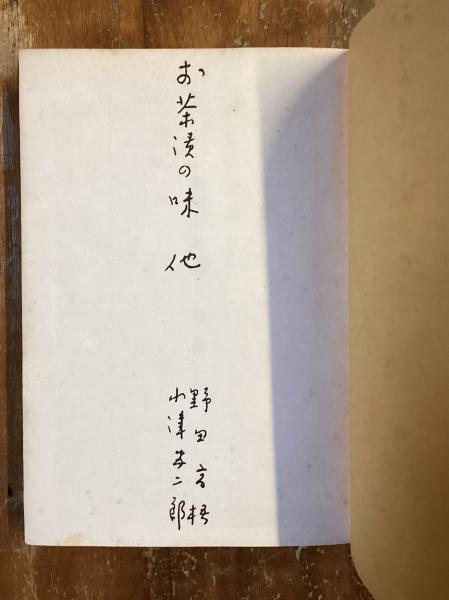 お茶漬の味 他
野田高梧
小津安二郎